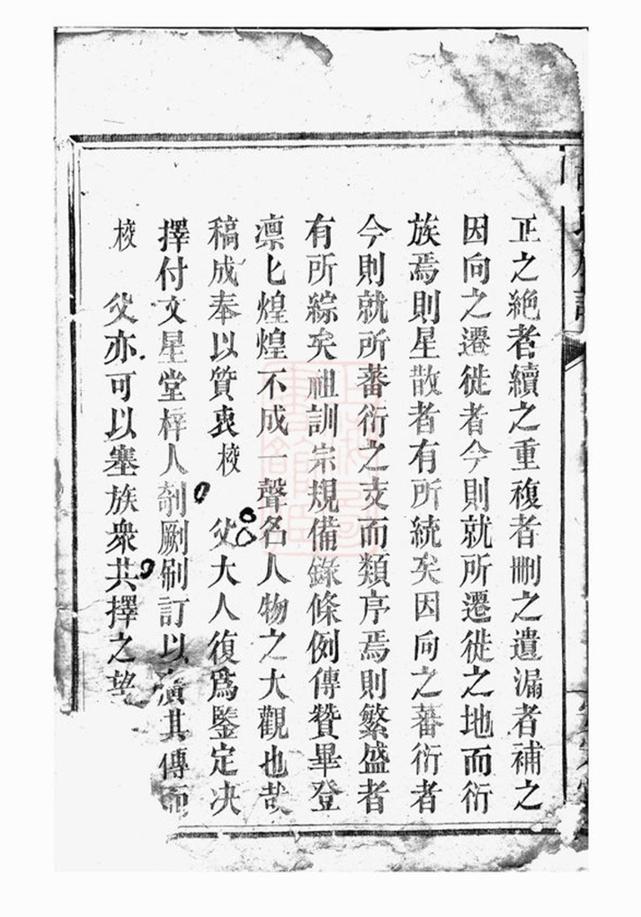 正之絶者續之重複者刪之遺漏者補之
因向之遷徙者今則就所遷徙之地而衍
族焉則星散者有所統矣因向之蕃衍者
今則就所蕃衍之支而類序焉則繁盛者
有所綜矣祖訓宗規備錄條例傳贊畢登
凛匕煌煌不成一聲名人物之大觀也哉
稿成奉以質衷校 父大人復爲鑒定決
擇付文星堂梓人剞劂刷訂以廣其傳而
校 父亦可以塞族衆共擇之望